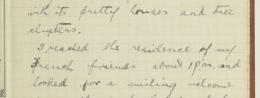 with its pretty houses and tree
clusters.
I reached the residence of my
French friends about 1 pm. and
looked for a smiling welcome